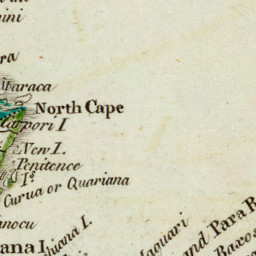 ra
Maraca
North Cape
Carpori I
New I.
Penitence
I.s
Curua or Quariana
anocu
ana I.
hiana I.
aguari
and Para R
Baxos